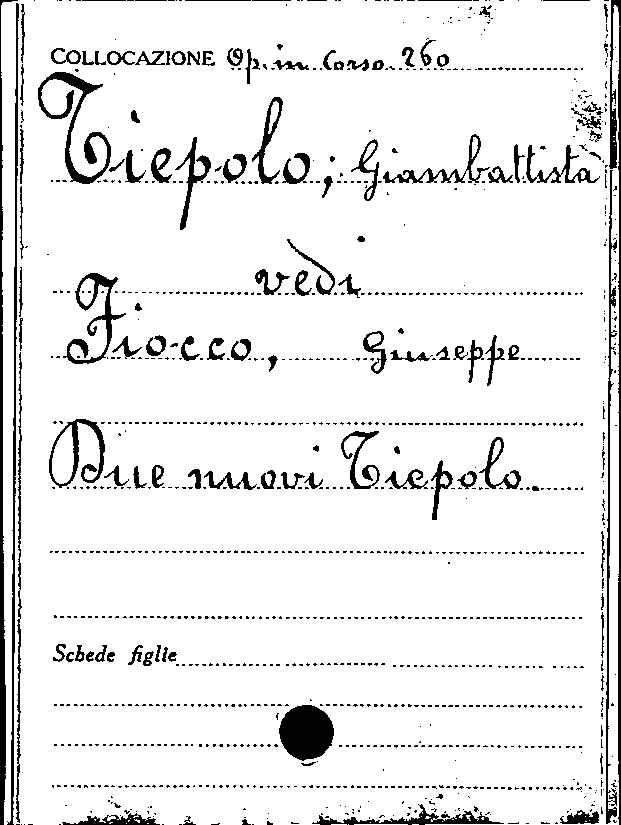 COLLOCAZIONE Op. in Corso 260
Tiepolo; Giambattista
vedi
Fiocco, Giuseppe
Due nuovi Tiepolo.
Schede figlie